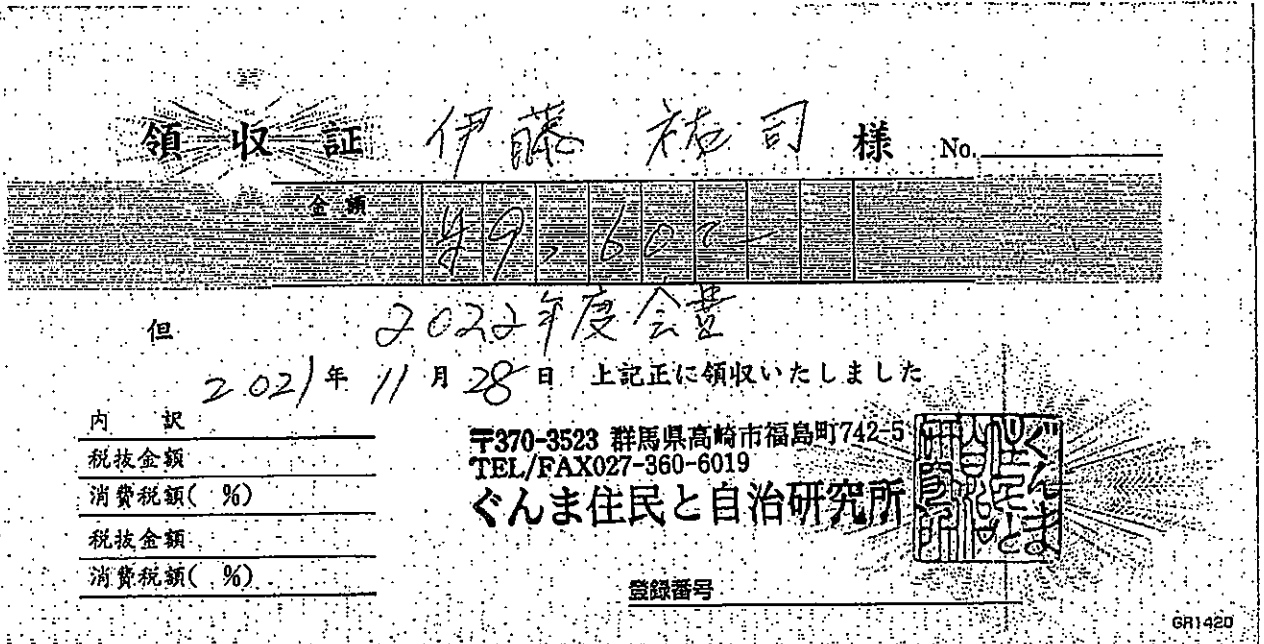 領収証 伊藤 祐司 様 No.
金額 ¥9,600-
但 2022年度会費
2021年 11月 28日 上記正に領収いたしました
内 訳
税抜金額
消費税額( %)
税抜金額
消費税額( %)
〒370-3523 群馬県高崎市福島町742-5
TEL/FAX027-360-6019
ぐんま住民と自治研究所
ぐんま住民と自治研究所
登録番号
GR1420